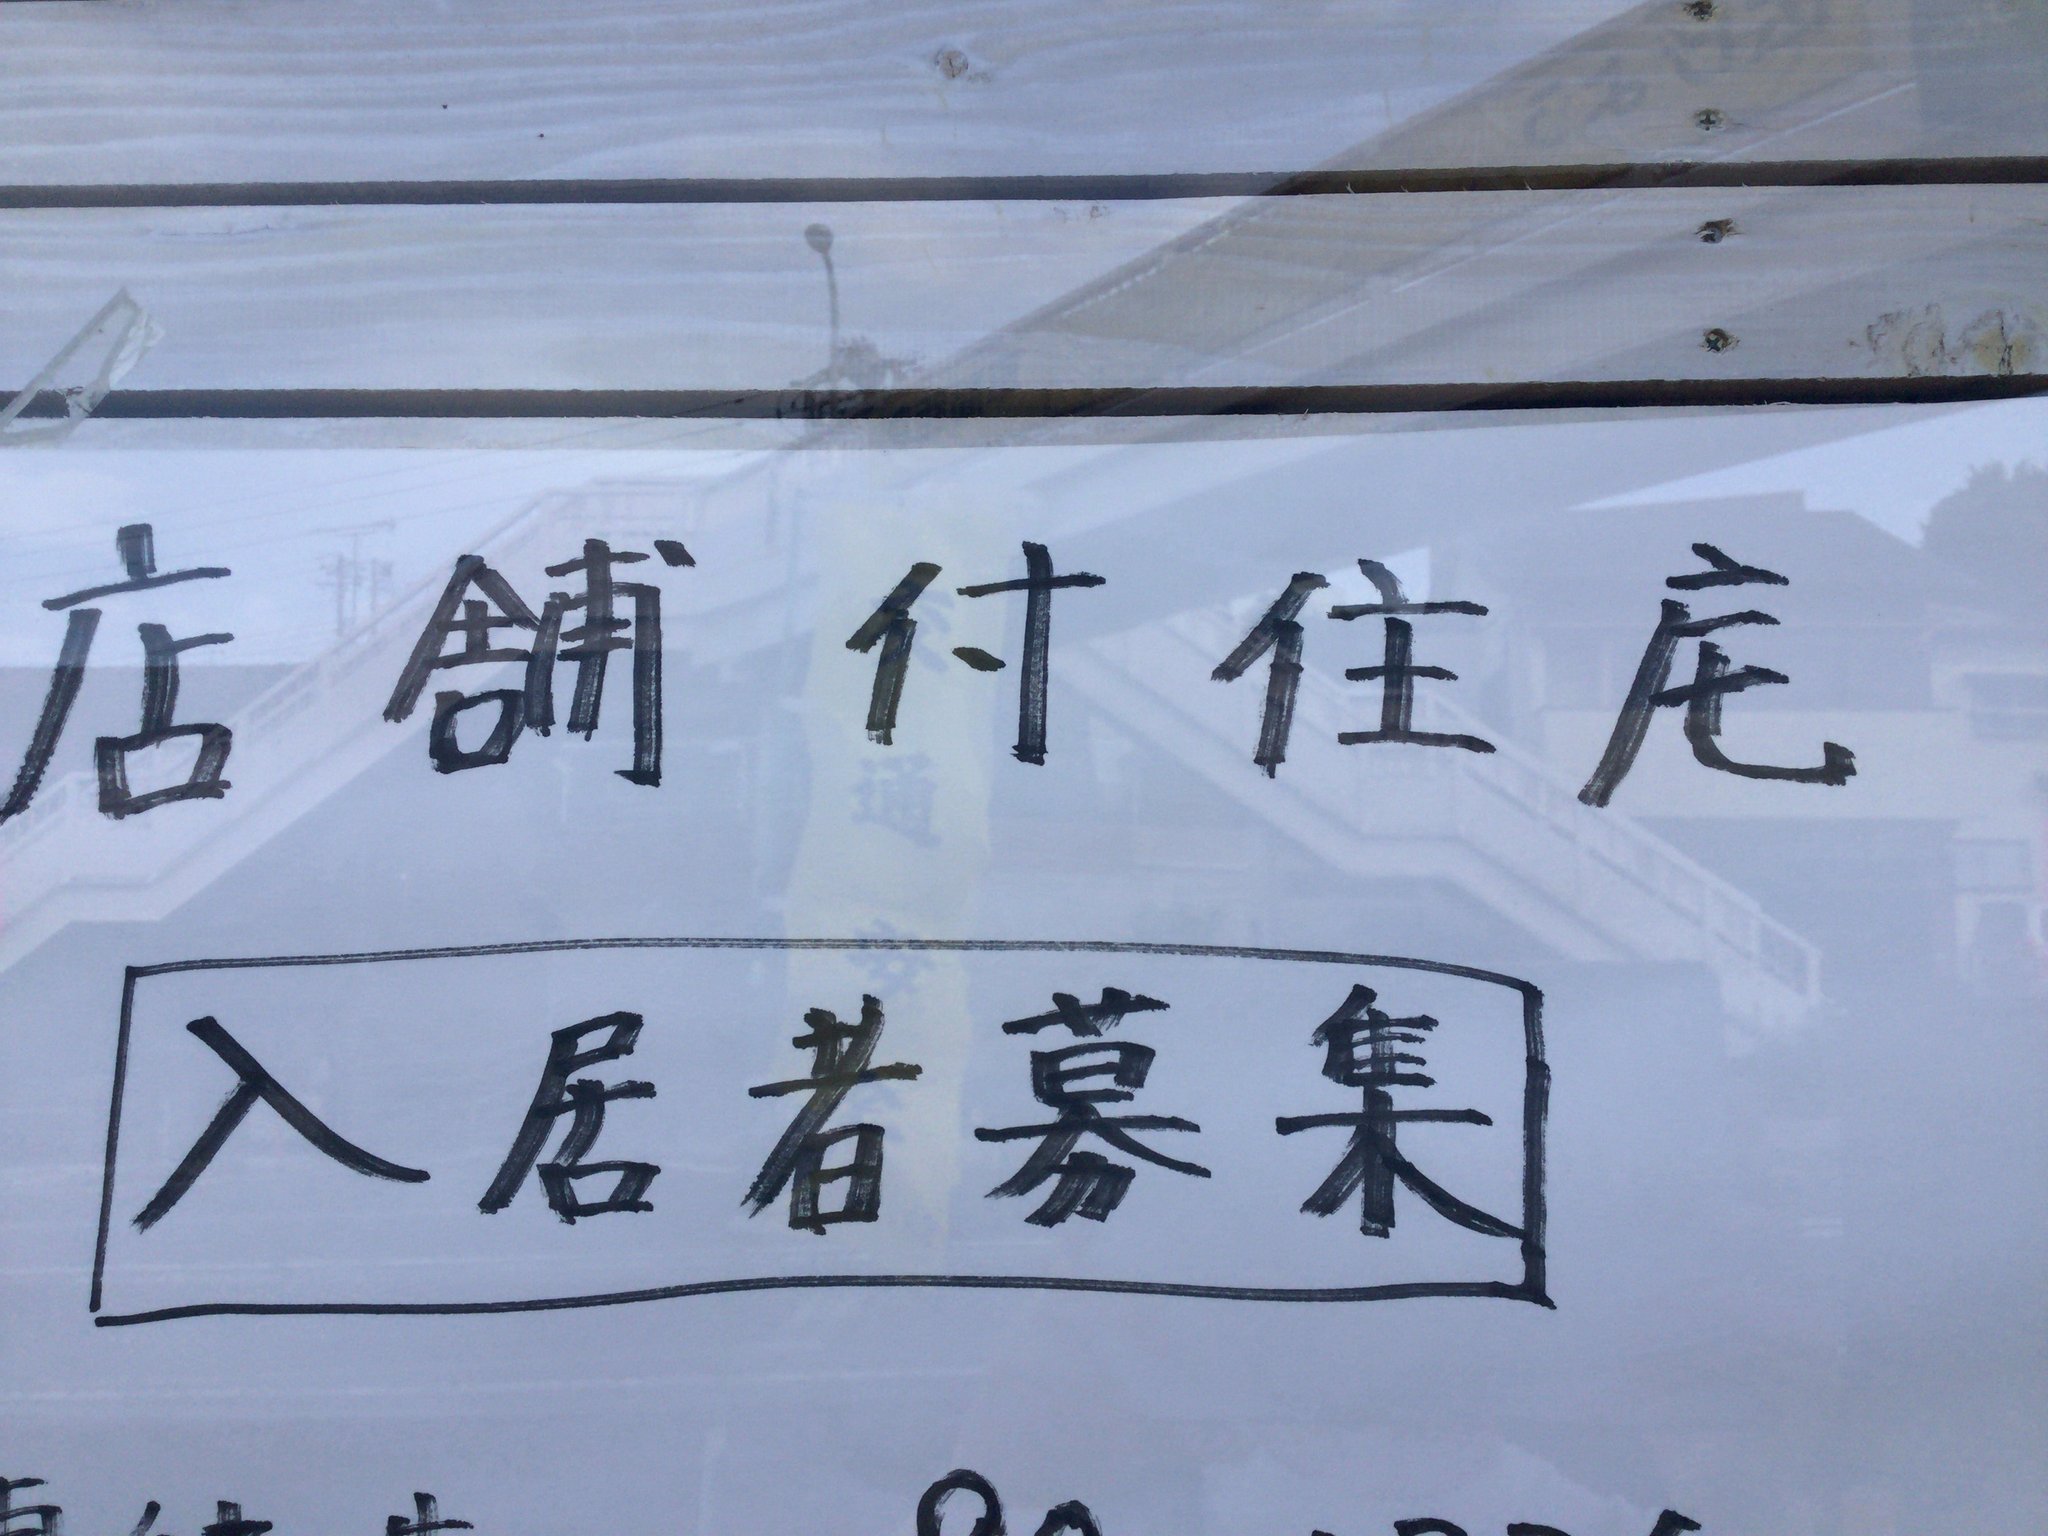 店舗付住宅
入居者募集